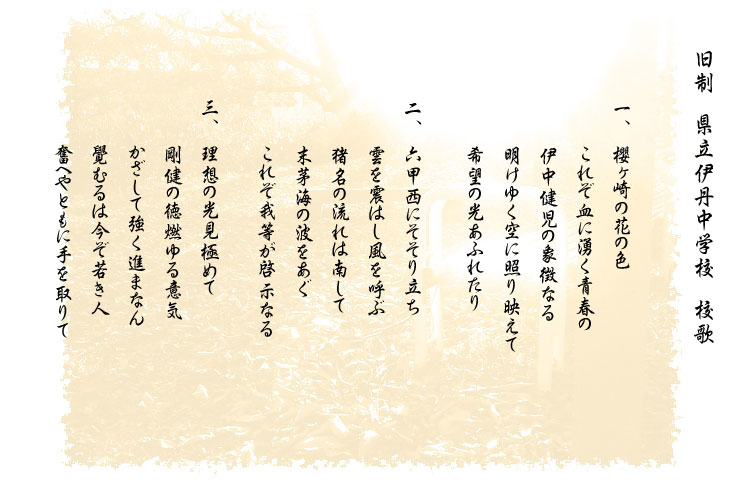 旧制 県立伊丹中学校 校歌
一、櫻ヶ崎の花の色
これぞ血に湧く青春の
伊中健児の象徴なる
明けゆく空に照り映えて
希望の光あふれたり
二、六甲西にそそり立ち
雲を震はし風を呼ぶ
猪名の流れは南して
末茅海の波をあぐ
これぞ我等が啓示なる
三、理想の光見極めて
剛健の徳燃ゆる意気
かざして強く進まなん
覺むるは今ぞ若き人
奮へやともに手を取りて